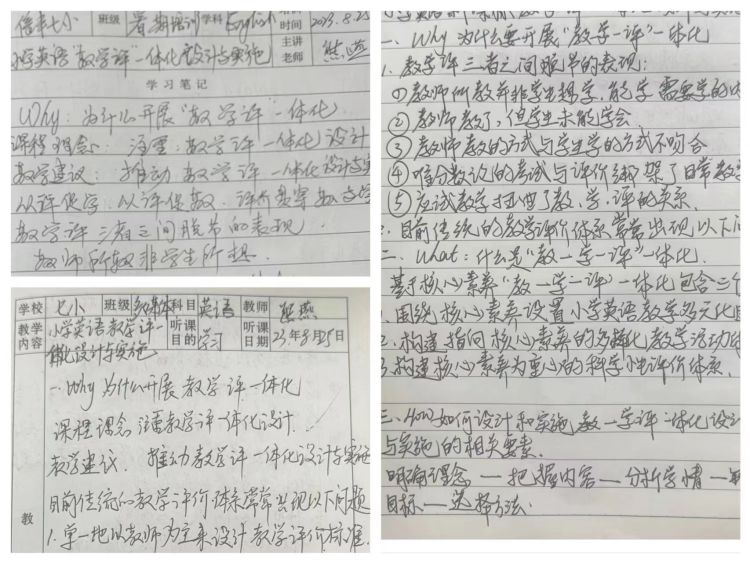 信丰七小 班级 暑期培训 学科 English 时间 2023.8.25
小学英语"教学评"一体化设计与实施 主讲老师 熊燕
学习笔记
Why: 为什么开展"教学评"一体化
课程理念: 注重"教学评"一体化设计
教学建议: 推动"教学评"一体化设计与实
从评促学, 以评促教, 评价贯穿教与学
教学评三者之间脱节的表现
教师所教非学生所想.
学校 七小 班级 多媒体 科目 英语 教师 熊燕
教学内容 小学英语教学评一体化设计与实施 听课目的 学习 听课日期 23年8月25日
一. Why 为什么开展教学评一体化
课程理念 注重教学评一体化设计.
教学建议. 推动教学评一体化设计与实施
目前传统的教学评价体系常常出现以下问题
1. 单一地以教师为主来设计教学评价标准.
教
一、Why 为什么要开展"教学一评"一体化
1. 教学评三者之间脱节的表现:
①教师所教并非学生想学, 能学, 需要学的
② 教师教了, 但学生未能学会
③ 教师教的方式与学生学的方式不吻合
④ 唯分数论的考试与评价绑架了日常教学
⑤ 应试教学扭曲了教、学、评的关系.
目前传统的教学评价体系常常出现以下问
二、What: 什么是"教一学一评"一体化.
基于核心素养"教一学一评"一体化包含三个
围绕核心素养设置小学英语教学多元化目
2. 构建指向核心素养的多样化教学活动
3. 构建核心素养为重心的科学性评价体系.
三、How 如何设计和实施教一学评一体化设计
与实施的相关要素.
明确理念 — 把握内容 — 分析学情 —
目标 — 选择方法.